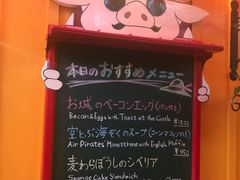 本日のおすすめメニュー
お城のベーコンエッグ(パン付き)
Bacon & Eggs with Toast at the Castle
空とぶ海ぞくのスープ(コーンマフィン付)
Air Pirates Minestrone with English Muffin
¥950
麦わらぼうしのシベリア
Sponge Cake Sandwich